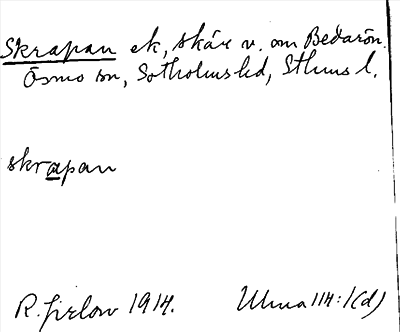 Skrapan ek, skär v. om Bedarön.
Ösmo sn, Sotholms hd, Sthms l.
skrapan
R. Jirlow 1914. Ulma 114:1(d)